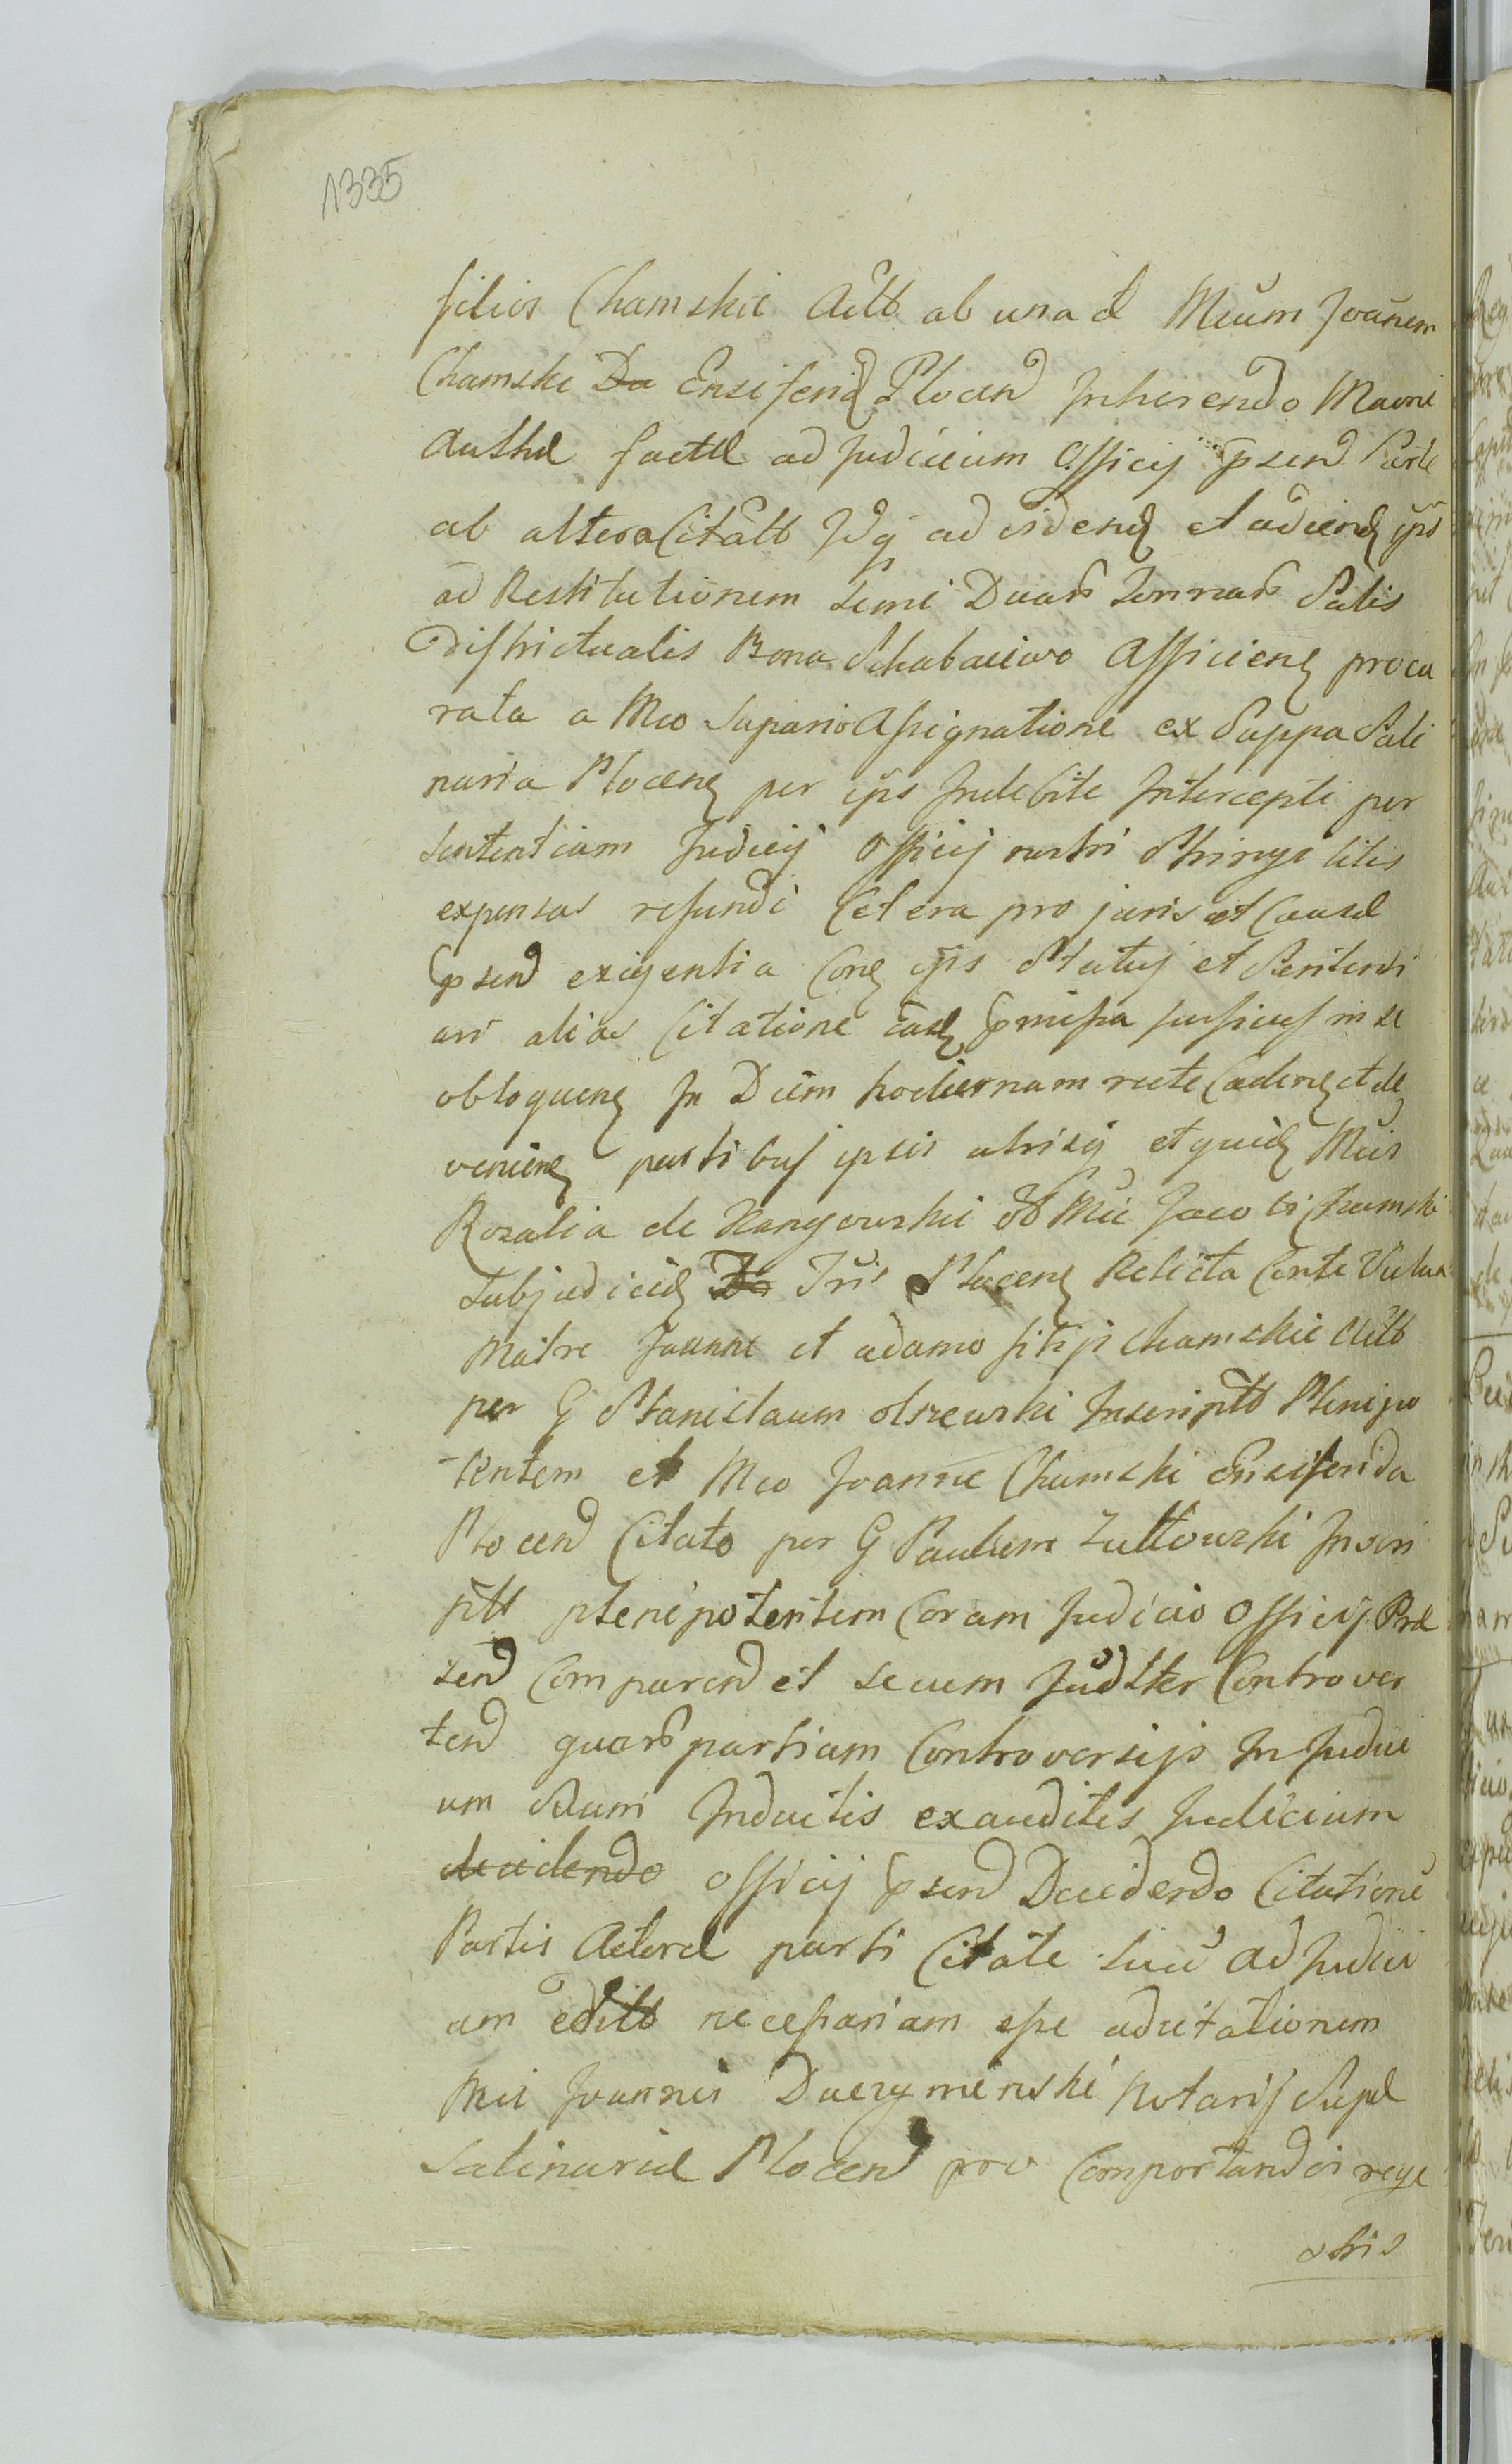 1335
filios Chamskie Actt ab una et Mcum Joannem
Chamski Da Ensiferid Plocen Inherendo Maori
Authae factae ad Judicium Officij psen Parte
ab altera Citatt Idq ad videnq et audienq ips
ad Restitutionem semi Duar Tonnar Salis
Districtualis Bona Schabaiewo Afficienq procu
rata a Mco Suparis Assignatione ex Suppa Sali
naria Plocenq per ips Indebite Intercepti per
sententiam Judicij Officij nostri Stringi litis
expensas refundi Cetera pro juris et Causae
psen exigentia Conq ips Statuj et Sententi
ari alias Citatione eadq pmissa fusius in se
obloquenq In Diem hodiernam recte Cadenq et de
venienq partibus ipsis utrisq et quidq Mcis
Rozalia de Kanyowskie Mci Jacobi Chamski
Subjudicidq Da Tris Plocenq Relicta Conte Vidua
Matre Joanne et adamo filijs Chamskie Actt
per G Stanislaum olszewski Inscriptt Plenipo
tentem et Mco Joanne Chamski Ensiferida
Plocen Citato per G Paulum Zullowski Inscri
ptt plenipotentem Coram Judicio Officij Prae
sen Comparen et secum Judlter Controver
ten quar partium Controversijs In Judici
um Suum Inductis exauditis Judicium
decidendo officij psen Decidendo Citatione
Partis Actorae parti Citate suu ad Judici
um editt necessariam esse adcitationem
Mci Joannis Daczyminski Notarij Supae
Salinariae Plocen pro Comportandis rege
stris